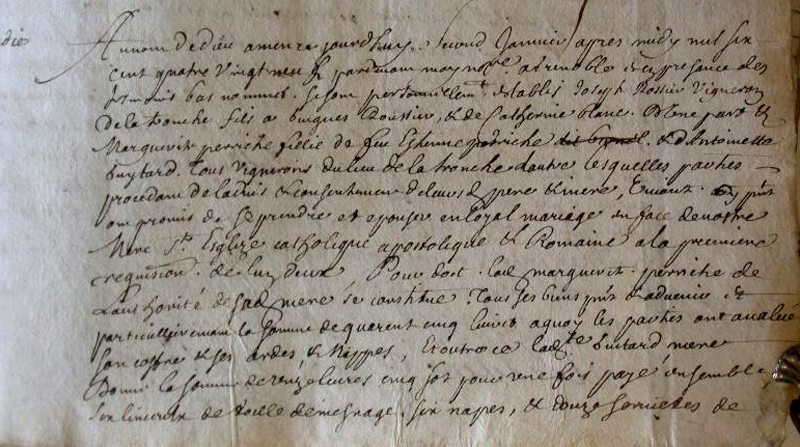 Au nom de dieu amen ce jourdhuy second Janvier apres midy mil six
cent quatre vingt neuf pardevant moy nore. a Grenoble & en presance des
tesmoins bas nommes se sont personnellemt establis Joseph Rossin Vigneron
de la tronche fils a hugues Roissin & de Catherine blanc. Dune part &
Marguerite perriche fillie de feu Estienne perriche & dAntoinette
buytard. Tous Vignerons du lieu de la tronche dautre lesquelles parties
procedant de ladvis & consentement de leurs pere & mere,
ont promis de se prendre et epouser en loyal mariage en face de nostre
Mere Ste Esglize catholique apostolique & Romaine a la premiere
requisition. de lun deux, Pour dot. lad marguerite perriche de
Lauthorité de sad mere se constitue. Tous ses biens pnts & advenir &
particullieremant la somme de quarente cinq livres a quoy les parties ont avalué
son coffre & ses ardes & Nippes, & outre ce lad buitard mere
Donne la somme de livres cinq sols pour une fois payé ensemble
six linceux de toille de mesnage. six napes, & douze serviettes de